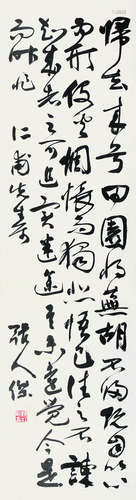 歸去來兮田園將蕪胡不歸既自以心
為形役奚惆悵而獨悲悟已往之不諫
知來者之可追實迷途其未遠覺今是
而昨非 仁甫先生
張人傑